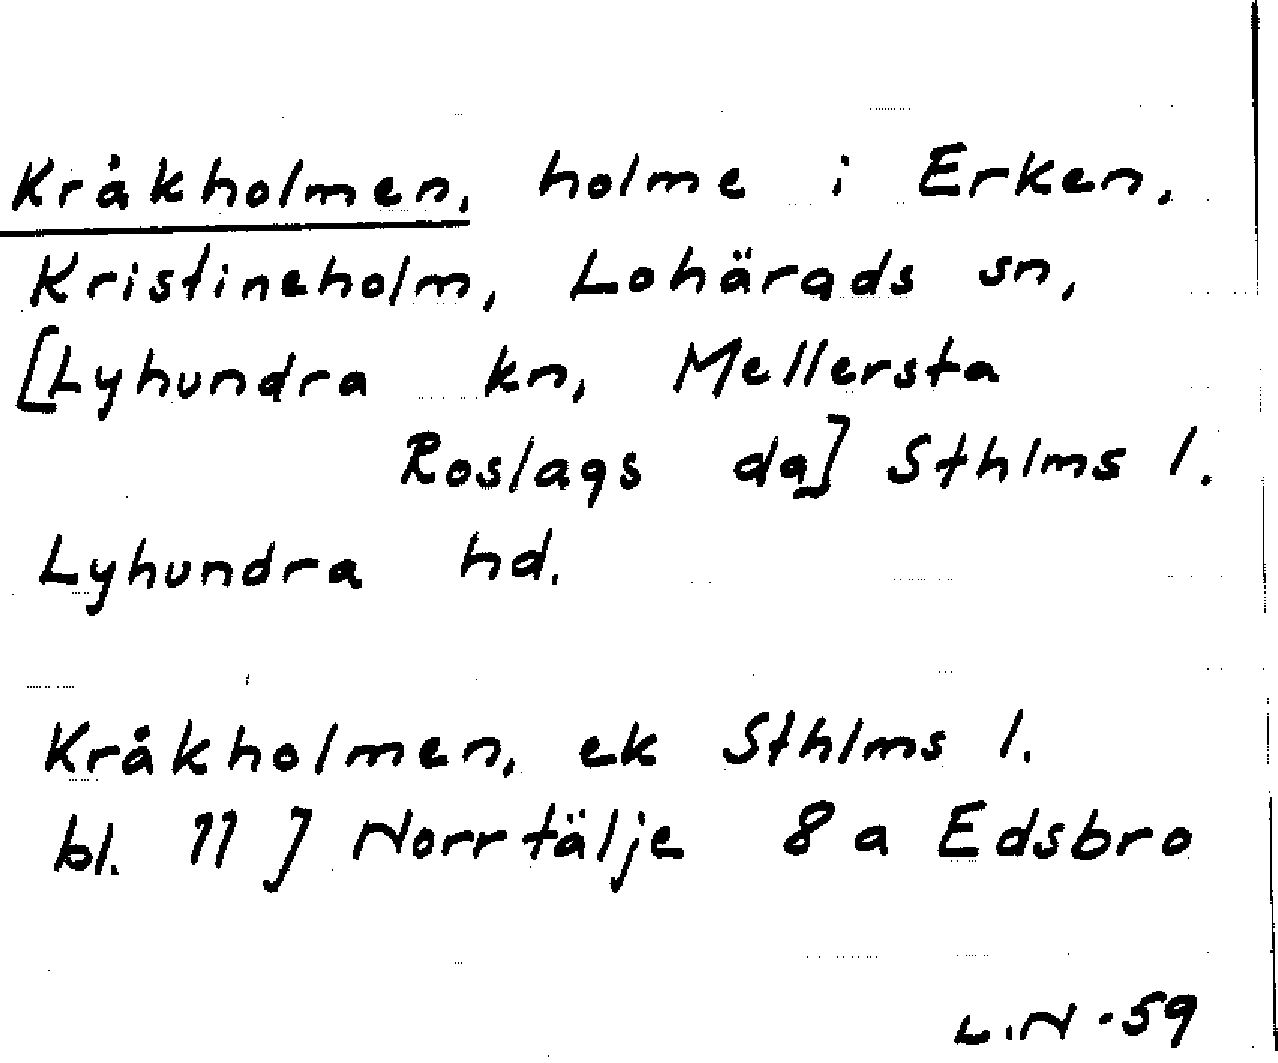 Kråkholmen, holme i Erken,
Kristineholm, Lohärads sn,
[Lyhundra kn, Mellersta
Roslags dg] Sthlms l.
Lyhundra hd.
Kråkholmen, ek Sthlms l.
bl. 11 J Norrtälje 8 a Edsbro
L.N -59